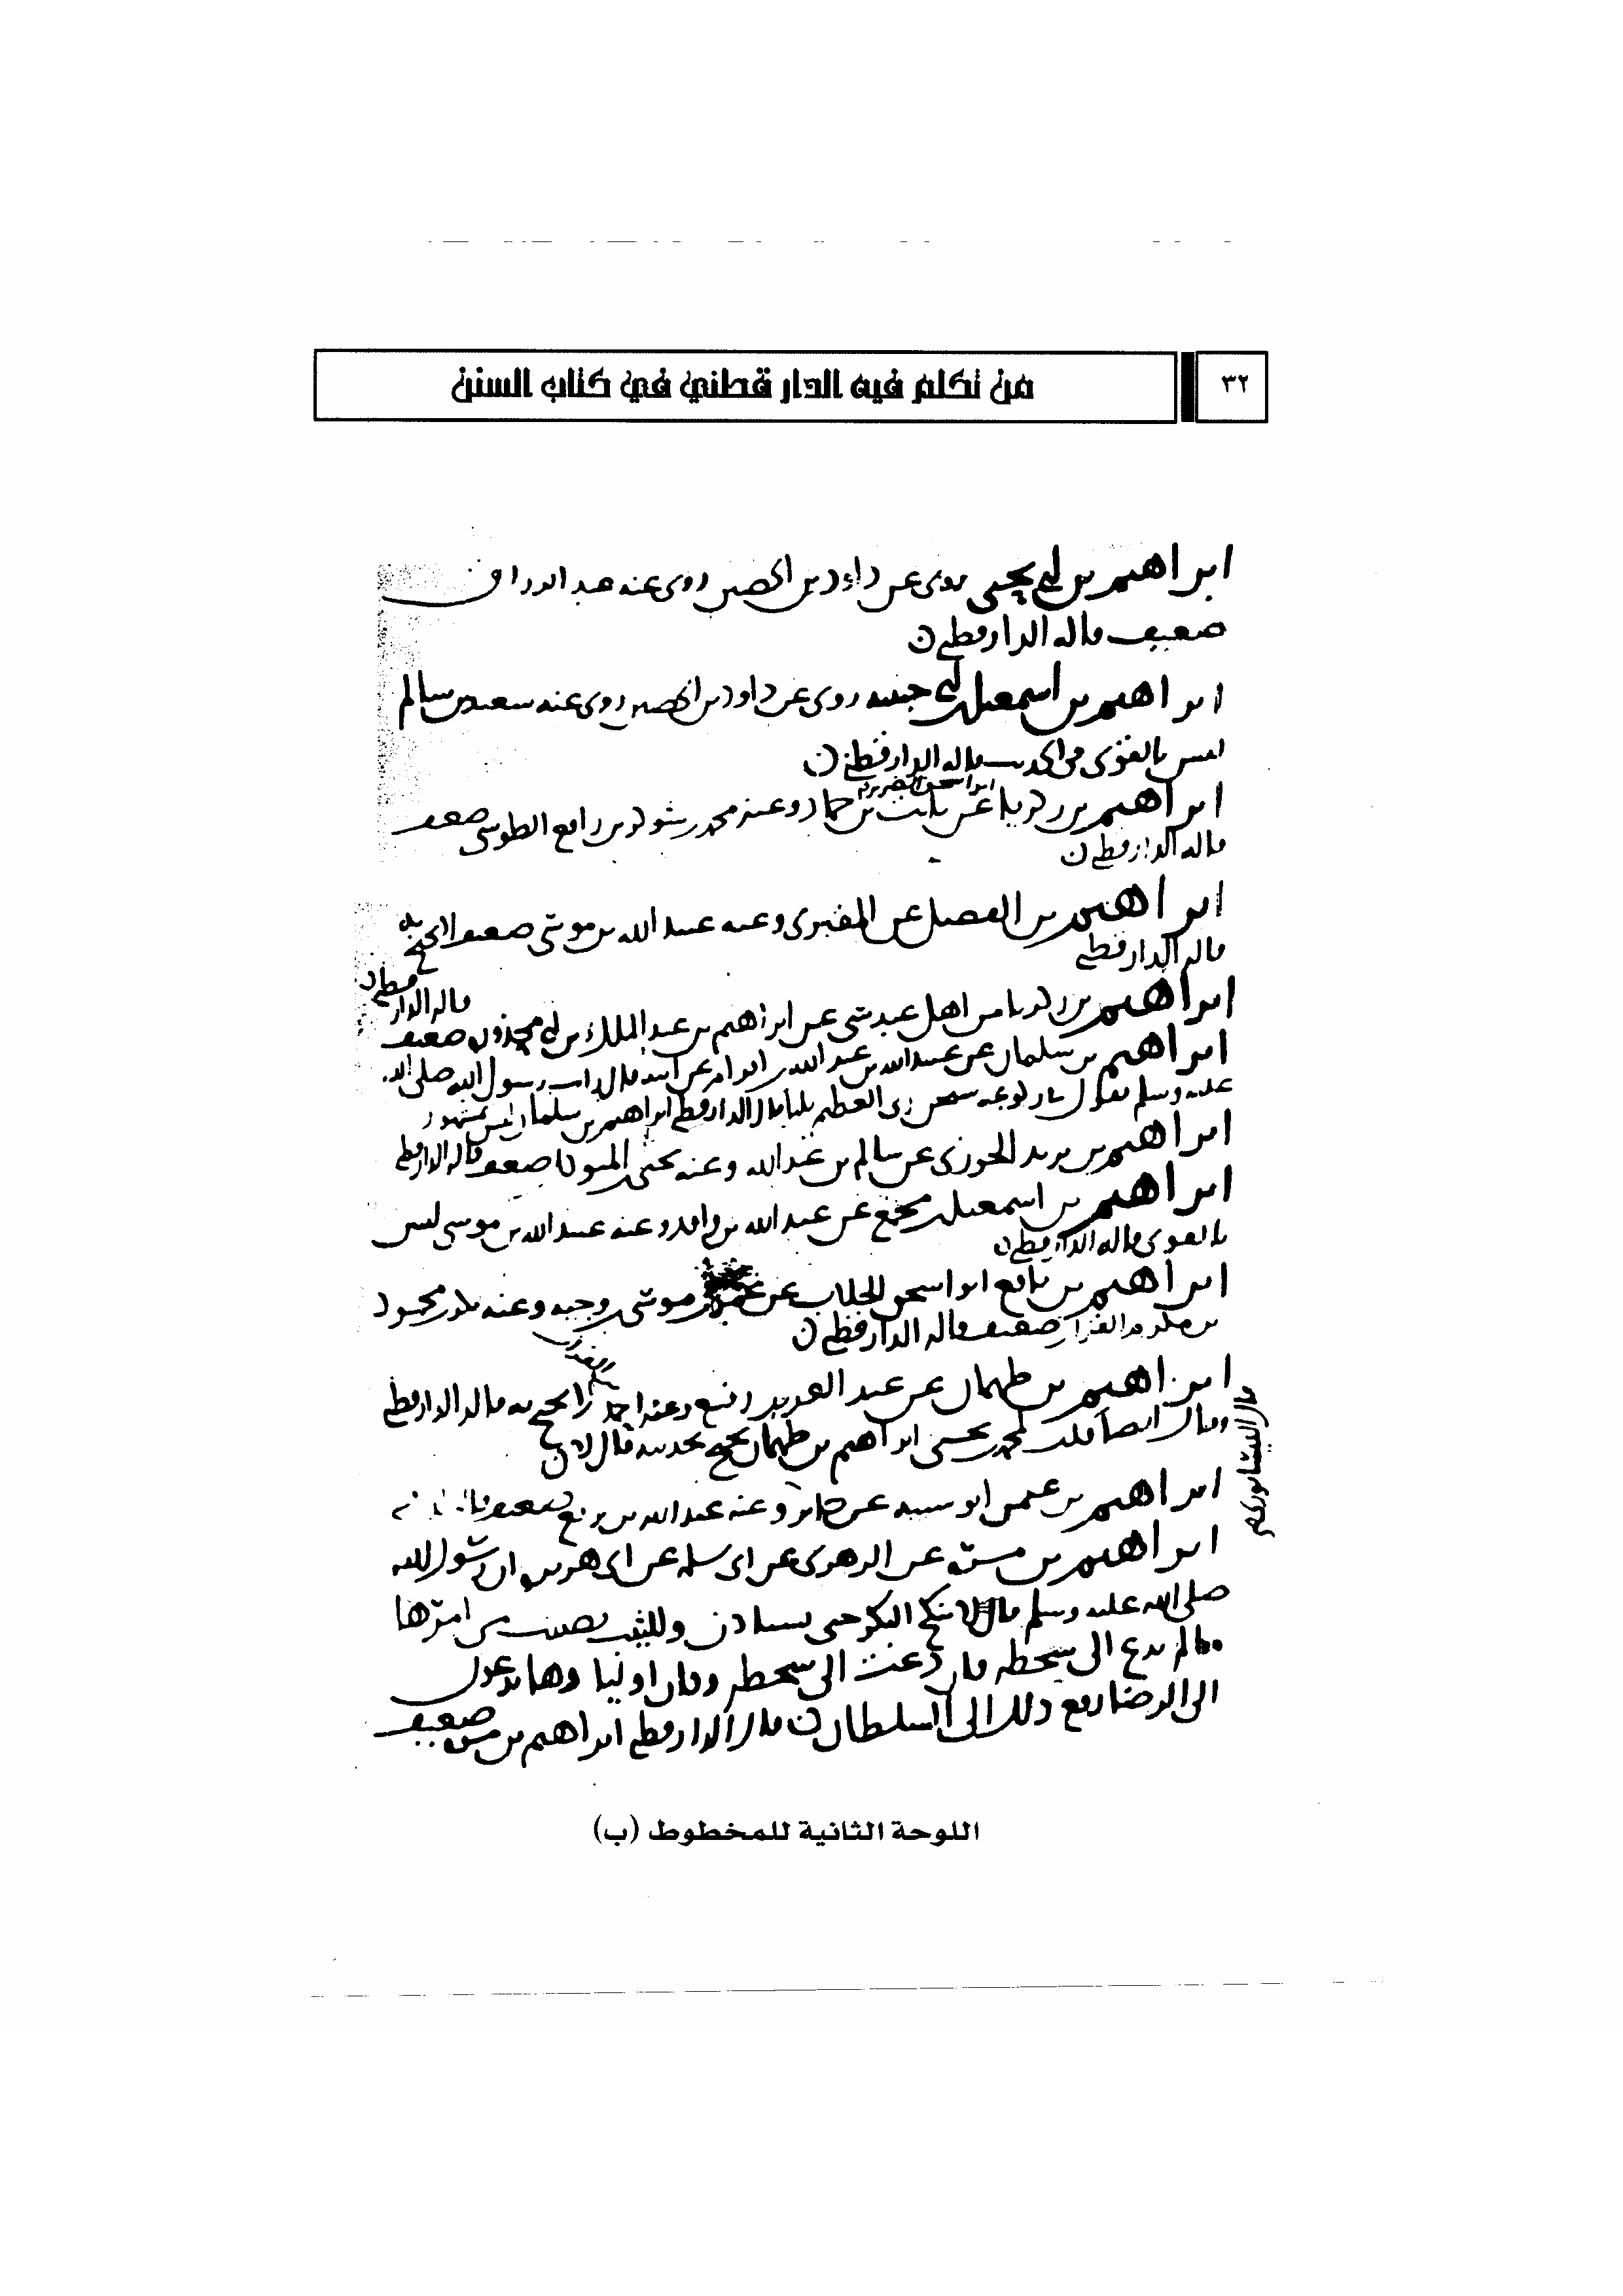 ٣٢
من تكلم فيه الدار قطني في كتاب السنن
ابراهيم بن ابي يحيى روى عن داود بن الحصين روى عنه عبد الرزاق
ضعيف قاله الدارقطني
ابراهيم بن اسمعيل بن ابي حبيبه روى عن داود بن الحصين روى عنه سعيد بن سالم
ليس بالقوي في الحديث قاله الدارقطني
ابو اسحق الضرير
ابراهيم بن زكريا عن ثابت بن حماد وعنه محمد بن رافع الطوسي ضعيف
قاله الدارقطني
ابراهيم بن الفضل عن المقبري وعنه عبيد الله بن موسى ضعيف لا يحتج به
قاله الدارقطني
ابراهيم بن زكريا من اهل عبدسي عن ابراهيم بن عبد الملك بن ابي محذوره ضعيف
قاله الدارقطني
ابراهيم بن سلمان عن عبيد الله بن عبد الله عن ابيه قال رايت رسول الله صلى الله
عليه وسلم يقول في ركوعه سبحن ربي العظيم ثلثا قال الدارقطني ابراهيم بن سلمان ليس بمشهور
ابراهيم بن يزيد الخوزي عن سالم بن عبد الله وعنه يحيى ضعيف قاله الدارقطني
ابراهيم بن اسمعيل بن مجمع عن عبد الله بن واقد وعنه عبيد الله بن موسى ليس
بالقوي قاله الدارقطني
ابراهيم بن نافع ابو اسحق الجلاب عن عمر بن موسى بن وجيه وعنه محمود
ضعيف قاله الدارقطني
ابراهيم بن طهمان عن عبد العزيز بن رفيع وعنه يحتج به قاله الدارقطني
وقال ايضا قلت لمحمد بن يحيى ابراهيم بن طهمان يحتج بحديثه قال لا
قال النيسابوري
ابراهيم بن عثمن ابو شيبه عن جابر وعنه عبد الله بن بزيع ضعيف
ابراهيم بن مره عن الزهري عن ابي سلمه عن ابي هريره ان رسول الله
صلى الله عليه وسلم قال لا تنكح البكر حتى تستاذن وللثيب نصيب من امرها
ما لم تدع الى سخطه فان دعت الى سخطه وكان اوليا وها يدعون
الى الرضا رفع ذلك الى السلطان قال الدارقطني ابراهيم بن مره ضعيف
اللوحة الثانية للمخطوط (ب)